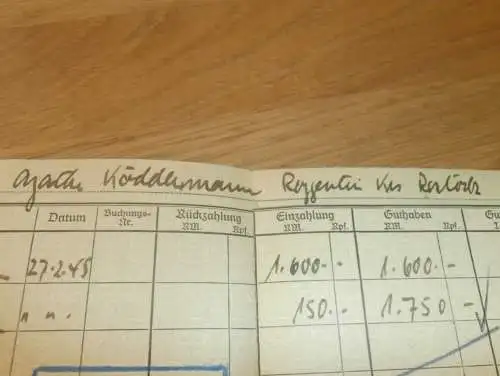 Agathe Köddermann Roggentin Krs Rostock
Datum Buchungs-Nr. Rückzahlung RM. Rpf. Einzahlung RM. Rpf. Guthaben RM. Rpf.
27.2.45 1.600.- - 1.600.-
" ". 150.- 1.750 -